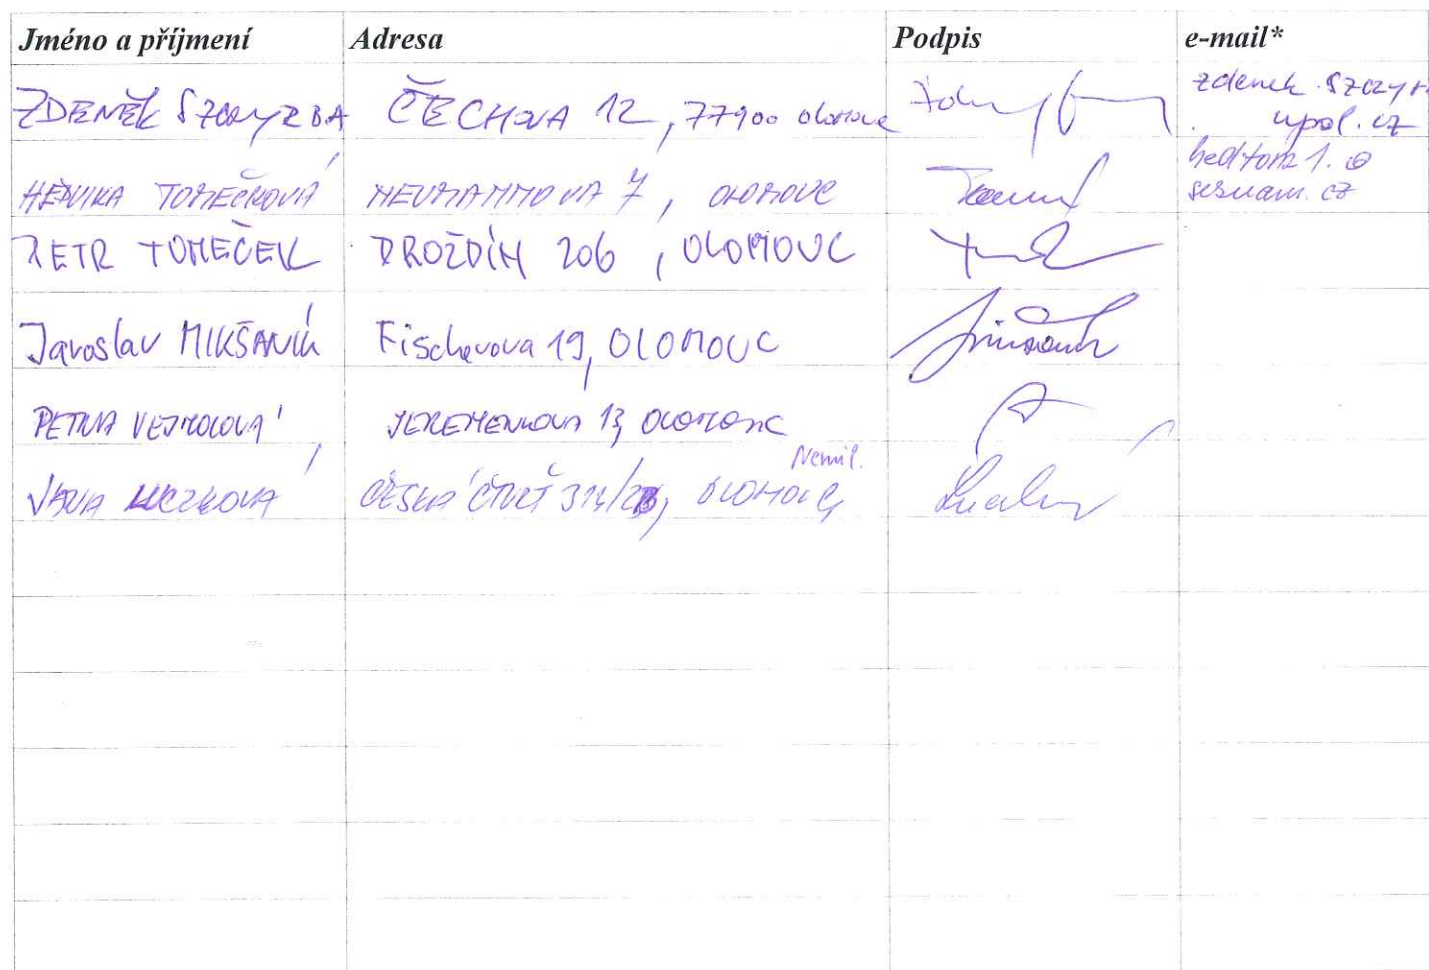 Jméno a příjmení Adresa Podpis e-mail*
ZDENĚK SZCZYRBA ČECHOVA 12, 77900 Olomouc zdenek.szczyr
upol.cz
HEDVIKA TOMEČKOVÁ NEUMANNOVA 7, OLOMOUC hedtom1.@
seznam.cz
PETR TOMEČEK DROŽDÍN 206, OLOMOUC
Jaroslav MIKŠANÍK Fischerova 19, OLOMOUC
PETRA VEJMOLOVÁ JEREMENKOVA 13, OLOMOUC
Nemil.
JANA ČESKÁ ČTVRŤ OLOMOUC,